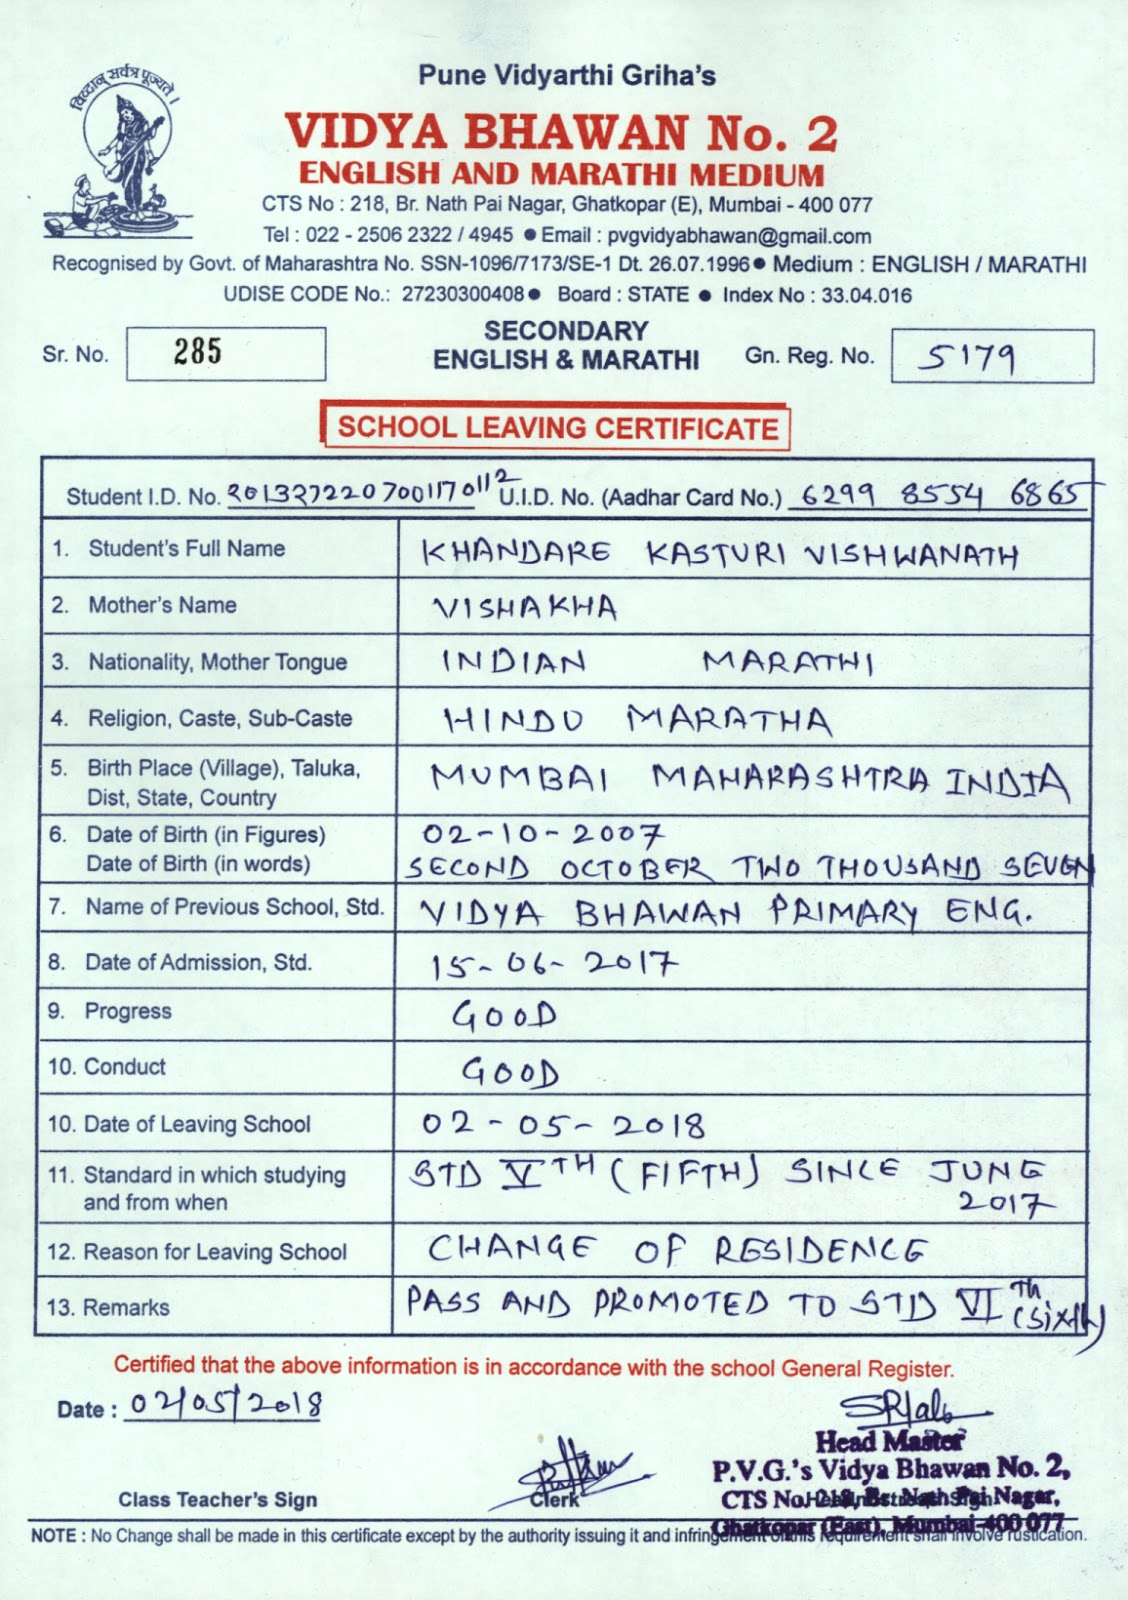 विद्वान् सर्वत्र पूज्यते ।
Pune Vidyarthi Griha's
VIDYA BHAWAN No. 2
ENGLISH AND MARATHI MEDIUM
CTS No : 218, Br. Nath Pai Nagar, Ghatkopar (E), Mumbai - 400 077
Tel : 022 - 2506 2322 / 4945 ● Email : pvgvidyabhawan@gmail.com
Recognised by Govt. of Maharashtra No. SSN-1096/7173/SE-1 Dt. 26.07.1996 ● Medium : ENGLISH / MARATHI
UDISE CODE No.: 27230300408 ● Board : STATE ● Index No : 33.04.016
SECONDARY
Sr. No. 285 ENGLISH & MARATHI Gn. Reg. No. 5179
SCHOOL LEAVING CERTIFICATE
Student I.D. No. 2013272207001170112 U.I.D. No. (Aadhar Card No.) 6299 8554 6865
1. Student's Full Name KHANDARE KASTURI VISHWANATH
2. Mother's Name VISHAKHA
3. Nationality, Mother Tongue INDIAN MARATHI
4. Religion, Caste, Sub-Caste HINDU MARATHA
5. Birth Place (Village), Taluka, MUMBAI MAHARASHTRA INDIA
Dist, State, Country
6. Date of Birth (in Figures) 02-10-2007
Date of Birth (in words) SECOND OCTOBER TWO THOUSAND SEVEN
7. Name of Previous School, Std. VIDYA BHAWAN PRIMARY ENG.
8. Date of Admission, Std. 15-06-2017
9. Progress GOOD
10. Conduct GOOD
10. Date of Leaving School 02-05-2018
11. Standard in which studying STD VTH (FIFTH) SINCE JUNE
and from when 2017
12. Reason for Leaving School CHANGE OF RESIDENCE
13. Remarks PASS AND PROMOTED TO STD VITh (Sixth)
Certified that the above information is in accordance with the school General Register.
Date : 02/05/2018
Head Master
P.V.G.'s Vidya Bhawan No. 2,
Class Teacher's Sign Clerk CTS No. 218, Br. Nath Pai Nagar,
Ghatkopar (East), Mumbai-400 077
NOTE : No Change shall be made in this certificate except by the authority issuing it and infringement of this requirement shall involve rustication.